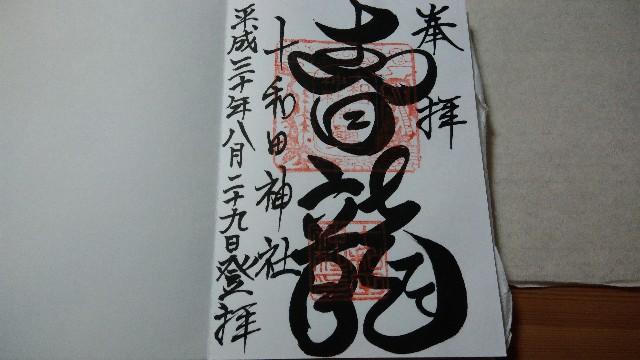 奉拝
青龍
十和田神社
平成三十年八月二十九日登拝